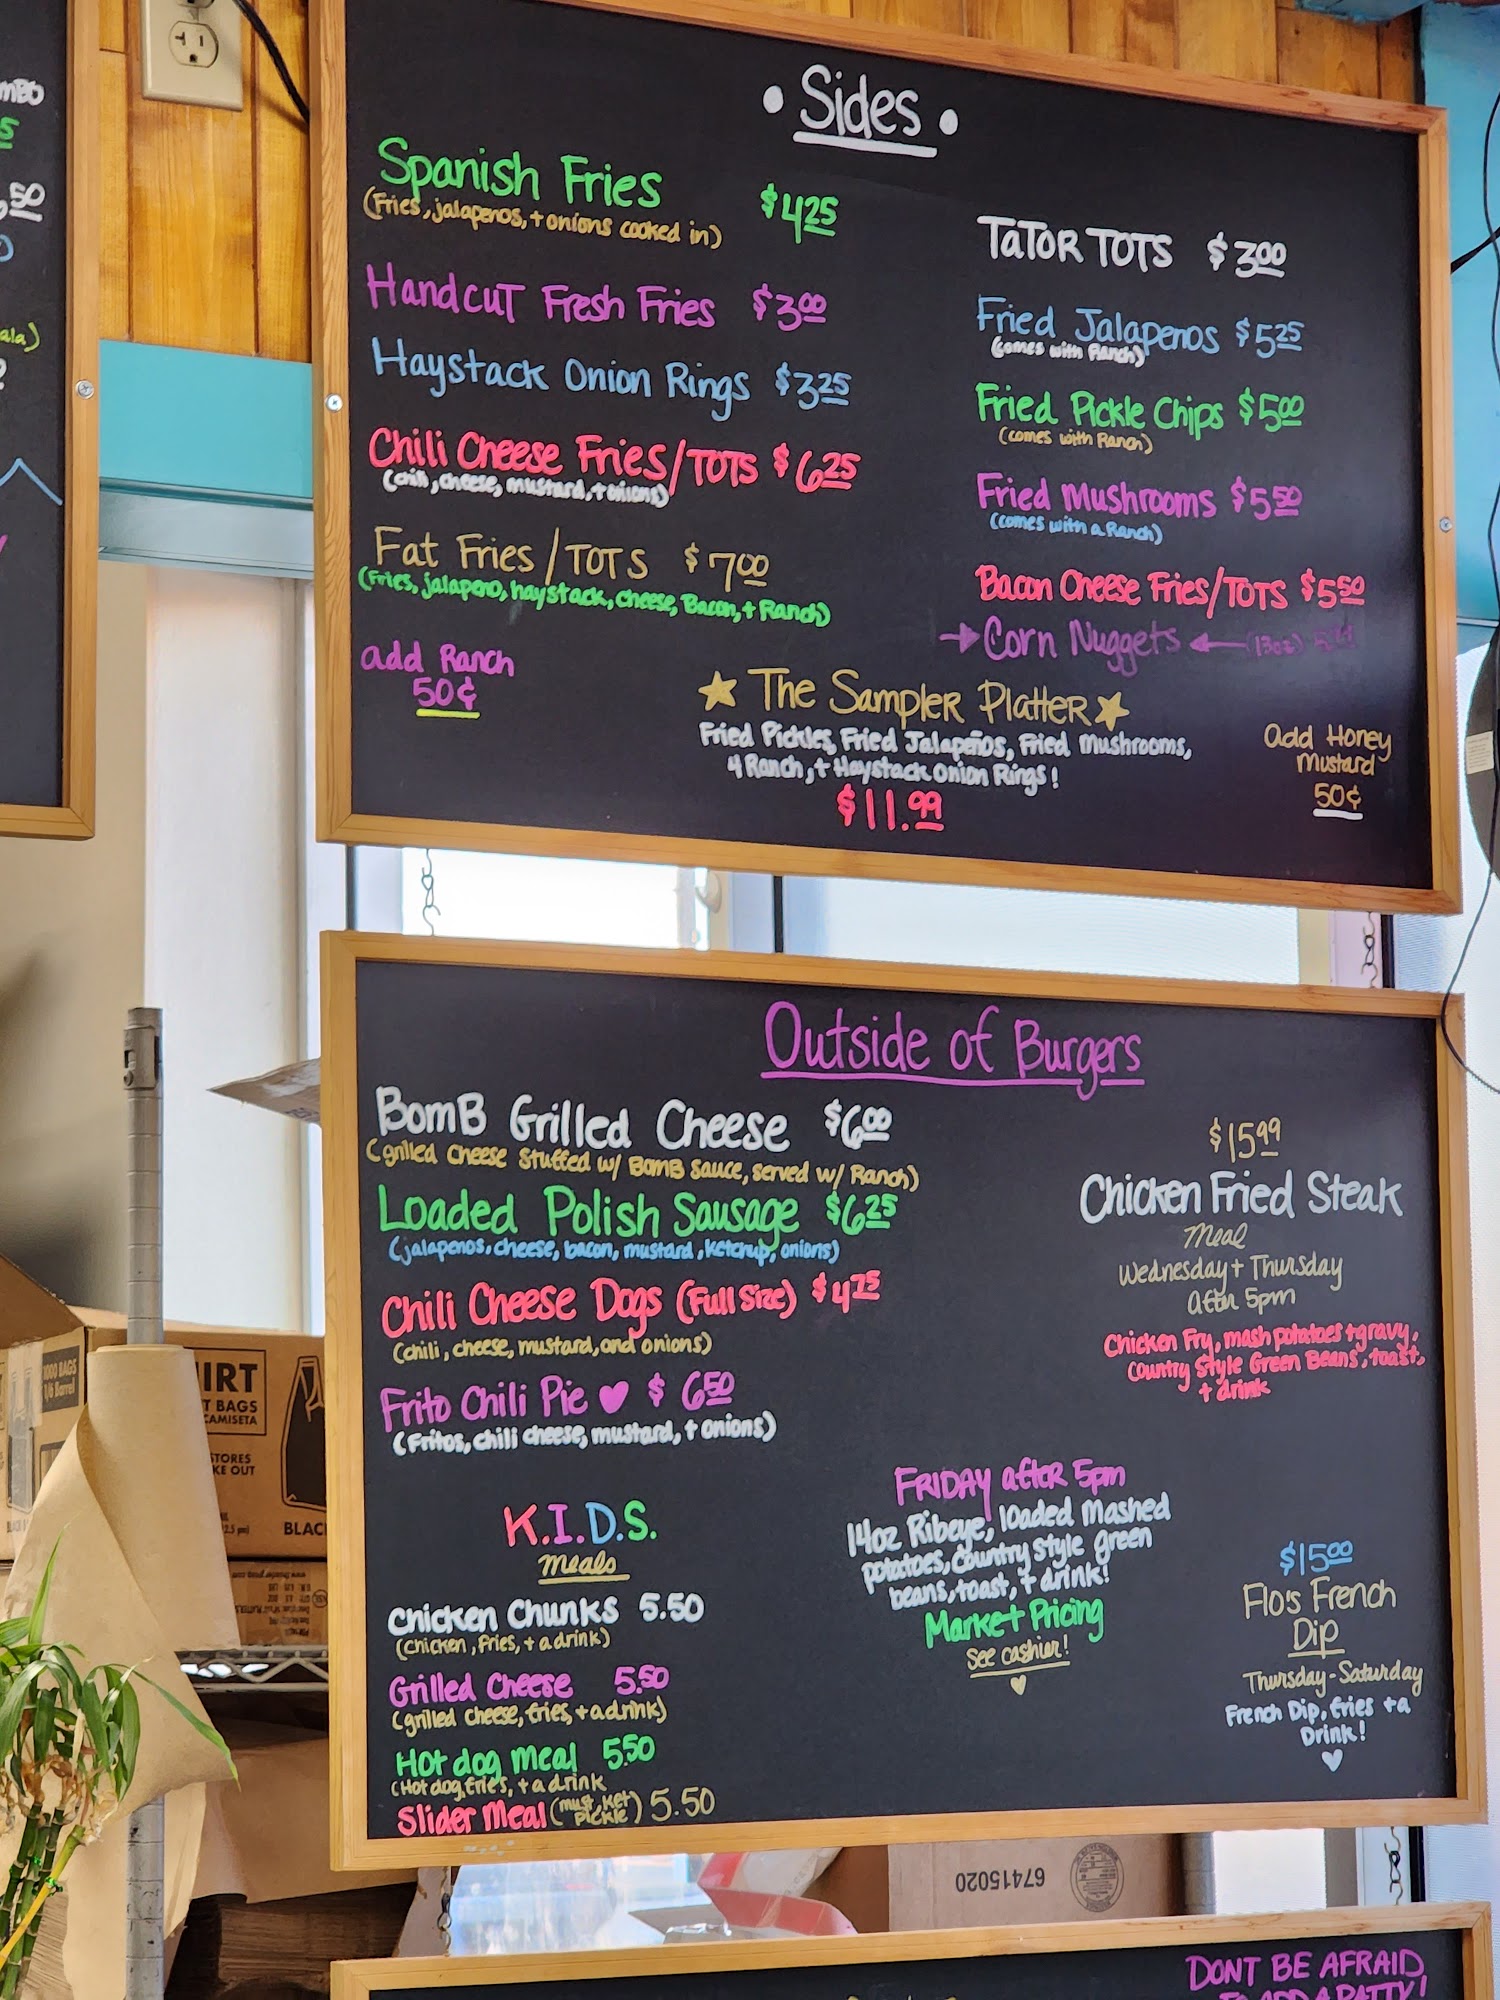 • Sides •
Spanish Fries $4.25
(Fries, jalapenos, + onions cooked in)
Handcut Fresh Fries $3.00
Haystack Onion Rings $3.25
Chili Cheese Fries/TOTS $6.25
(chili, cheese, mustard, + onions)
Fat Fries/TOTS $7.00
(Fries, jalapeno, haystack, cheese, Bacon, + Ranch)
add Ranch
50¢
TaTOR TOTS $3.00
Fried Jalapenos $5.25
(comes with Ranch)
Fried Pickle Chips $5.00
(comes with Ranch)
Fried Mushrooms $5.50
(comes with a Ranch)
Bacon Cheese Fries/TOTS $5.50
→ Corn Nuggets ← (13oz)
★ The Sampler Platter ★
Fried Pickles, Fried Jalapeños, Fried Mushrooms,
4 Ranch, + Haystack Onion Rings!
$11.99
add Honey
Mustard
50¢
Outside of Burgers
BomB Grilled Cheese $6.00
(grilled cheese stuffed w/ BomB sauce, served w/ Ranch)
Loaded Polish Sausage $6.25
(jalapenos, cheese, bacon, mustard, ketchup, onions)
Chili Cheese Dogs (Full Size) $4.75
(chili, cheese, mustard, and onions)
Frito Chili Pie ♥ $6.50
(Fritos, chili cheese, mustard, + onions)
K.I.D.S.
Meals
Chicken Chunks 5.50
(chicken, fries, + a drink)
Grilled Cheese 5.50
(grilled cheese, fries, + a drink)
Hot dog meal 5.50
(Hot dog, fries, + a drink
Slider Meal (must, ket 5.50
pickle)
$15.99
Chicken Fried Steak
Meal
Wednesday + Thursday
after 5pm
Chicken Fry, mash potatoes + gravy,
Country Style Green Beans, toast,
+ drink
FRIDAY after 5pm
14oz Ribeye, loaded mashed
potatoes, country style green
beans, toast, + drink!
Market Pricing
See cashier!
$15.00
Flo's French
Dip
Thursday - Saturday
French Dip, fries + a
Drink!
DONT BE AFRAID
TO ADD A PATTY!
1000 BAGS
1/6 Barrel
IRT
T BAGS
CAMISETA
STORES
KE OUT
BLAC
67415020